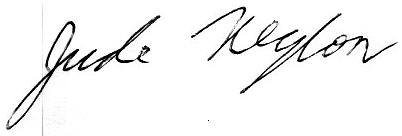 Jude Heylon